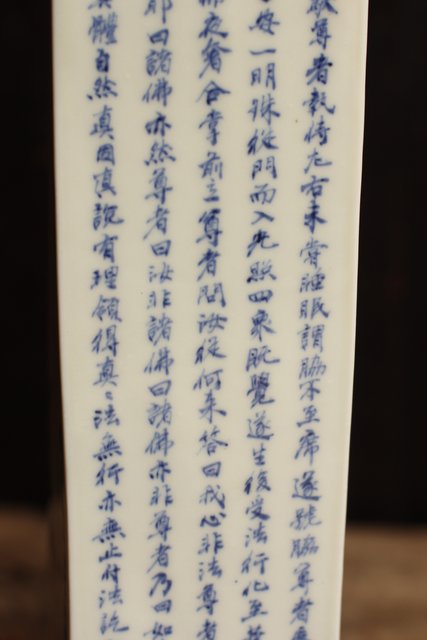 尊者執侍左右未嘗睡眠謂脇不至席遂號脇尊者
一明珠從門而入光照四衆既覺遂生後受法行化至
夜奢合掌前立尊者問汝從何来答曰我心非法尊者
耶曰諸佛亦然尊者曰汝非諸佛曰諸佛亦非尊者乃曰如
體自然真因真說有理領得真〻法無行亦無止付法説